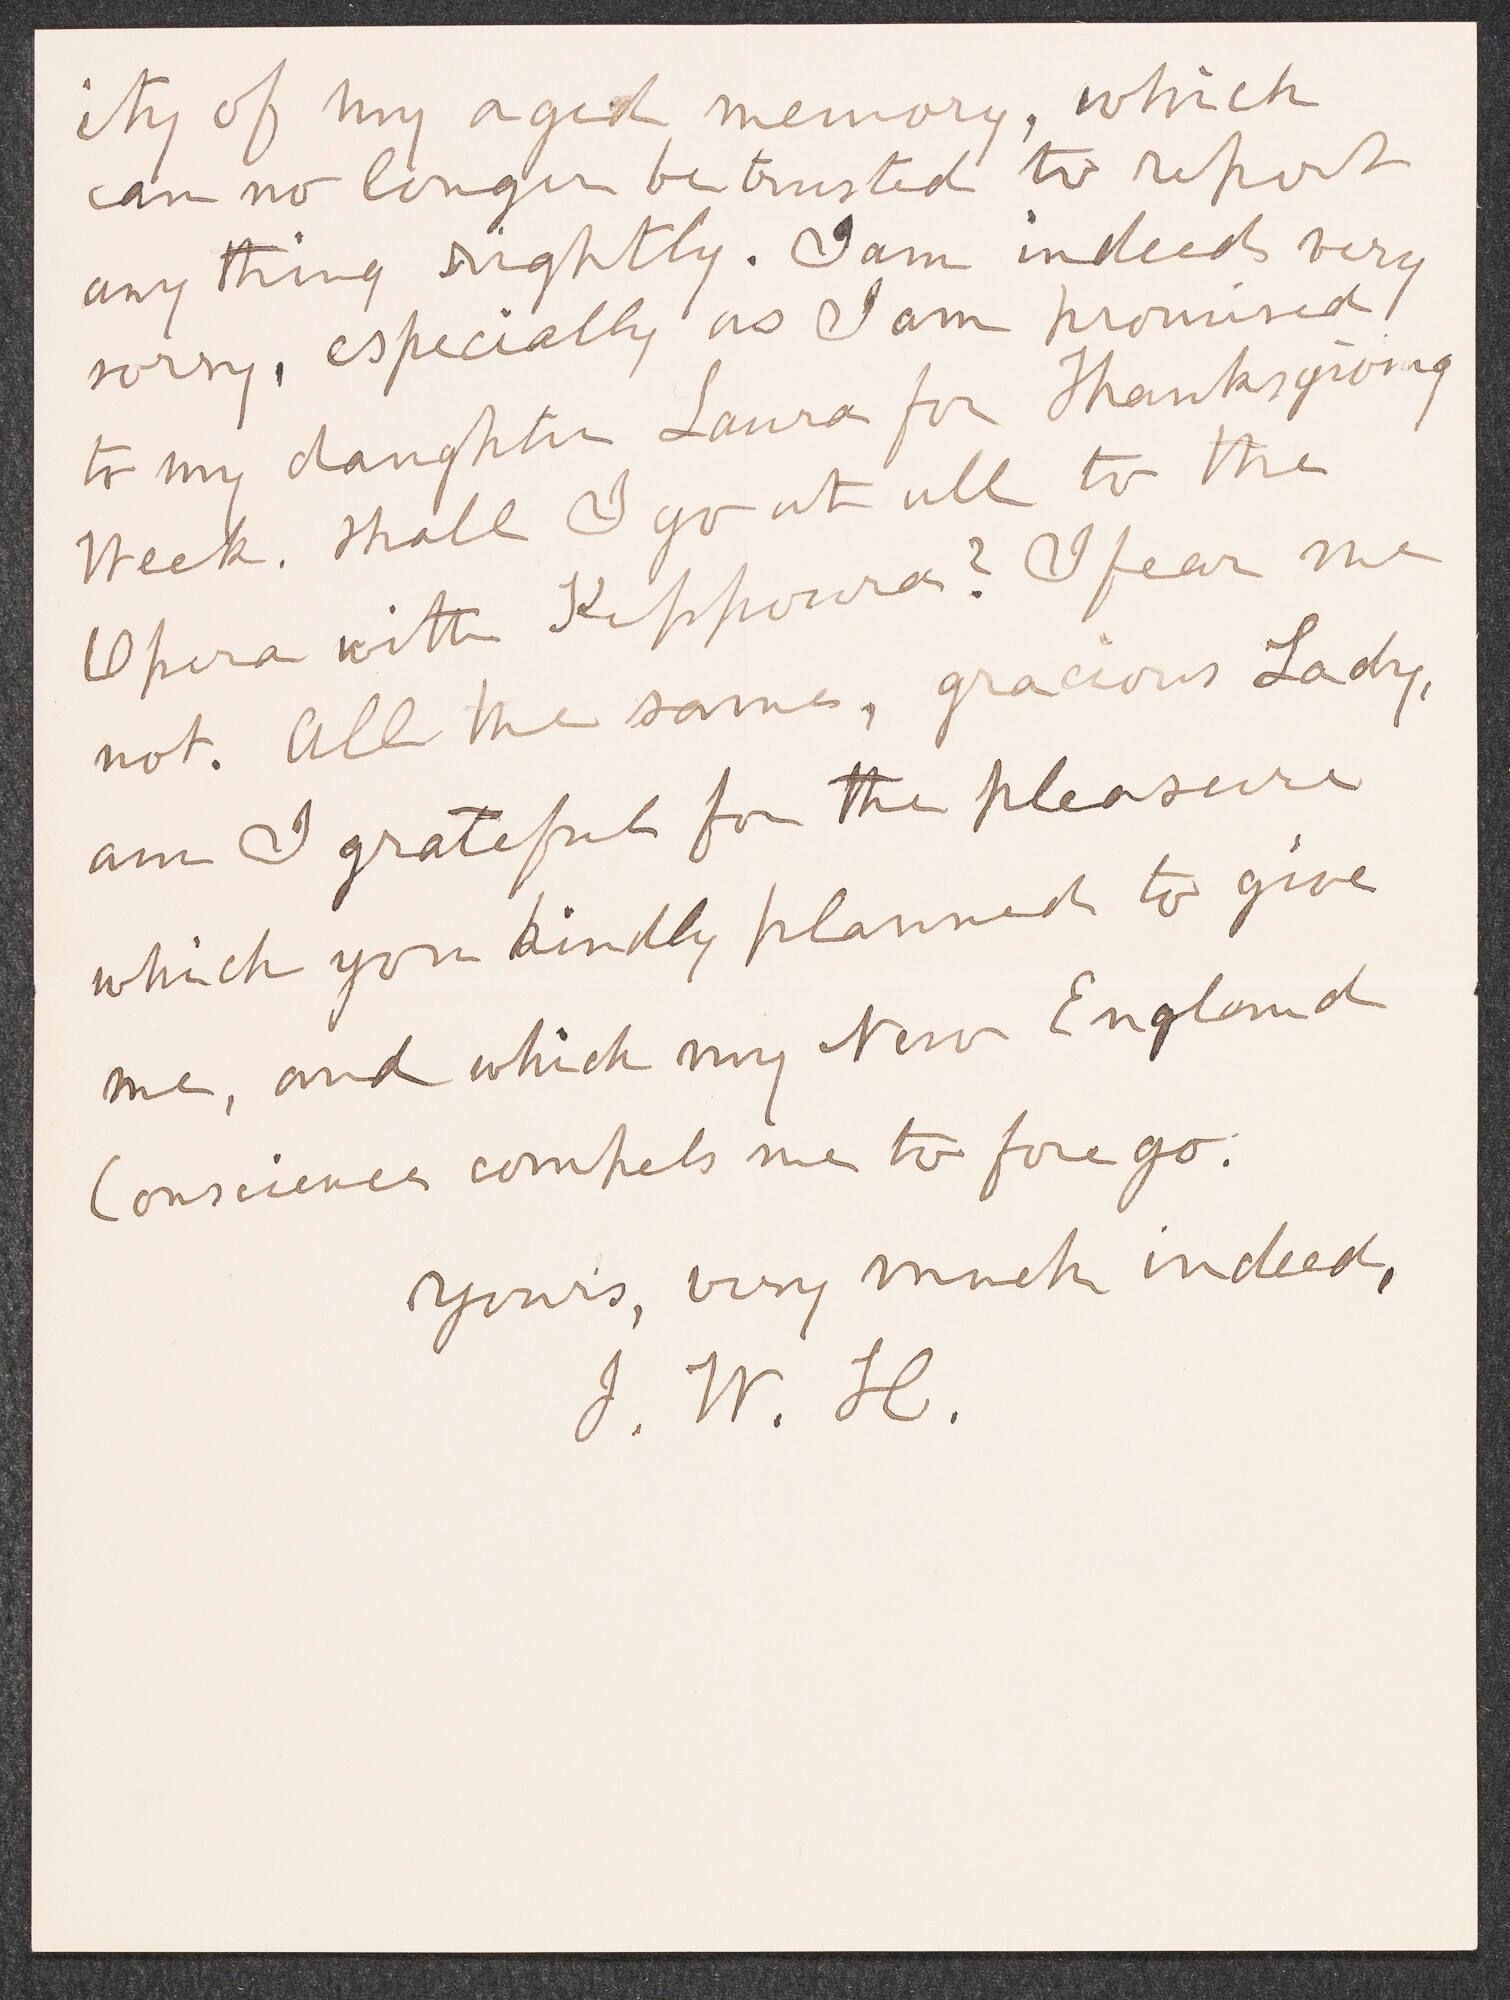 ity of my aged memory, which
can no longer be trusted to report
any thing rightly. I am indeed very
sorry, especially as I am promised
to my daughter Laura for Thanksgiving
Week. Shall I go at all to the
Opera with Kippowra? I fear me
not. All the same, gracious Lady,
am I grateful for the pleasure
which you kindly planned to give
me, and which my New England
Conscience compels me to forego.
Yours, very much indeed,
J. W. H.